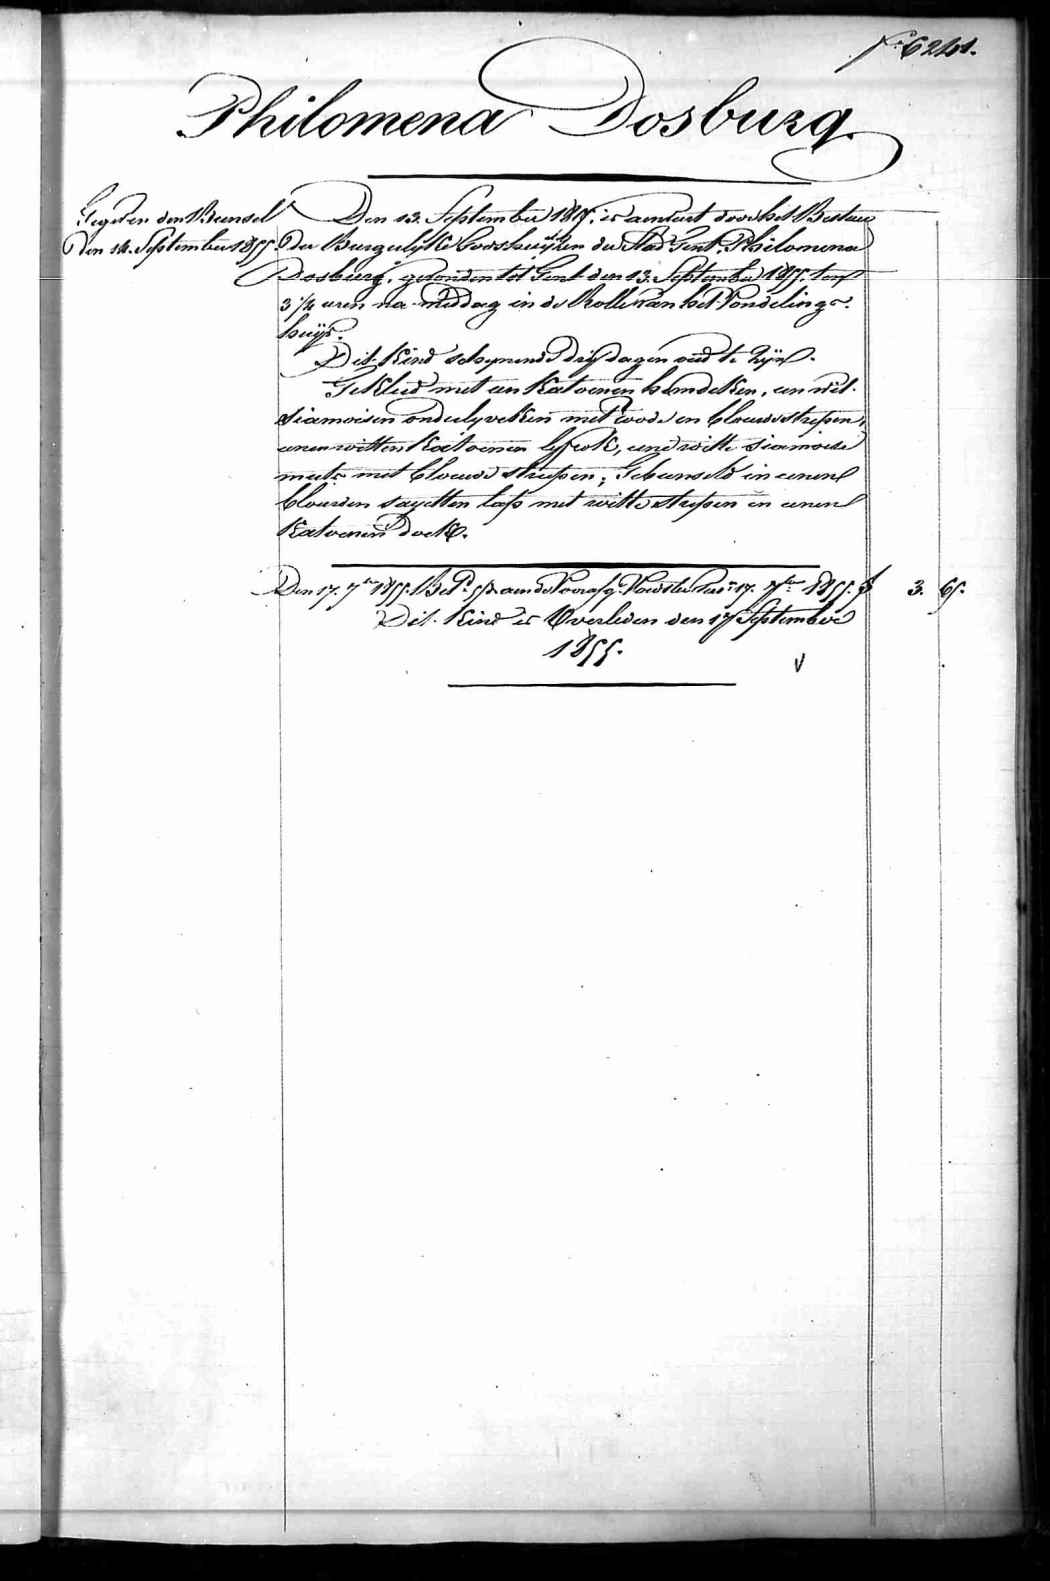 6241.
Philomena Dosburg.
Gegeven den Bunsel
Den 14. September 1855
Den 13. September 1855. is aenveert door het Bestuer
Der Burgerlyke Godshuijsen der Stad Gent. Philomena
Dosburg, gevonden tot Gent den 13. September 1855. ten
3 1/4 uren na middag in de Rolle van het Vondelings-
huijs.
Dit Kind schynende dry dagen oud te zyn.
Gekleed met een Katoenen hemdeken, een wit
siamoisen onderlyveken met roode en blauwe strepen,
eenen witten Katoenen lyfrok, eene witte siamoise
muts met blauwe strepen; Gebunseld in eenen
blauwen sayetten lap met witte strepen en eenen
Katoenen Doek.
Den 17. 7ber 1855. Bet. aen de 17. 7ber 1855. f 3. 65.
Dit Kind is Overleden den 17 September
1855.